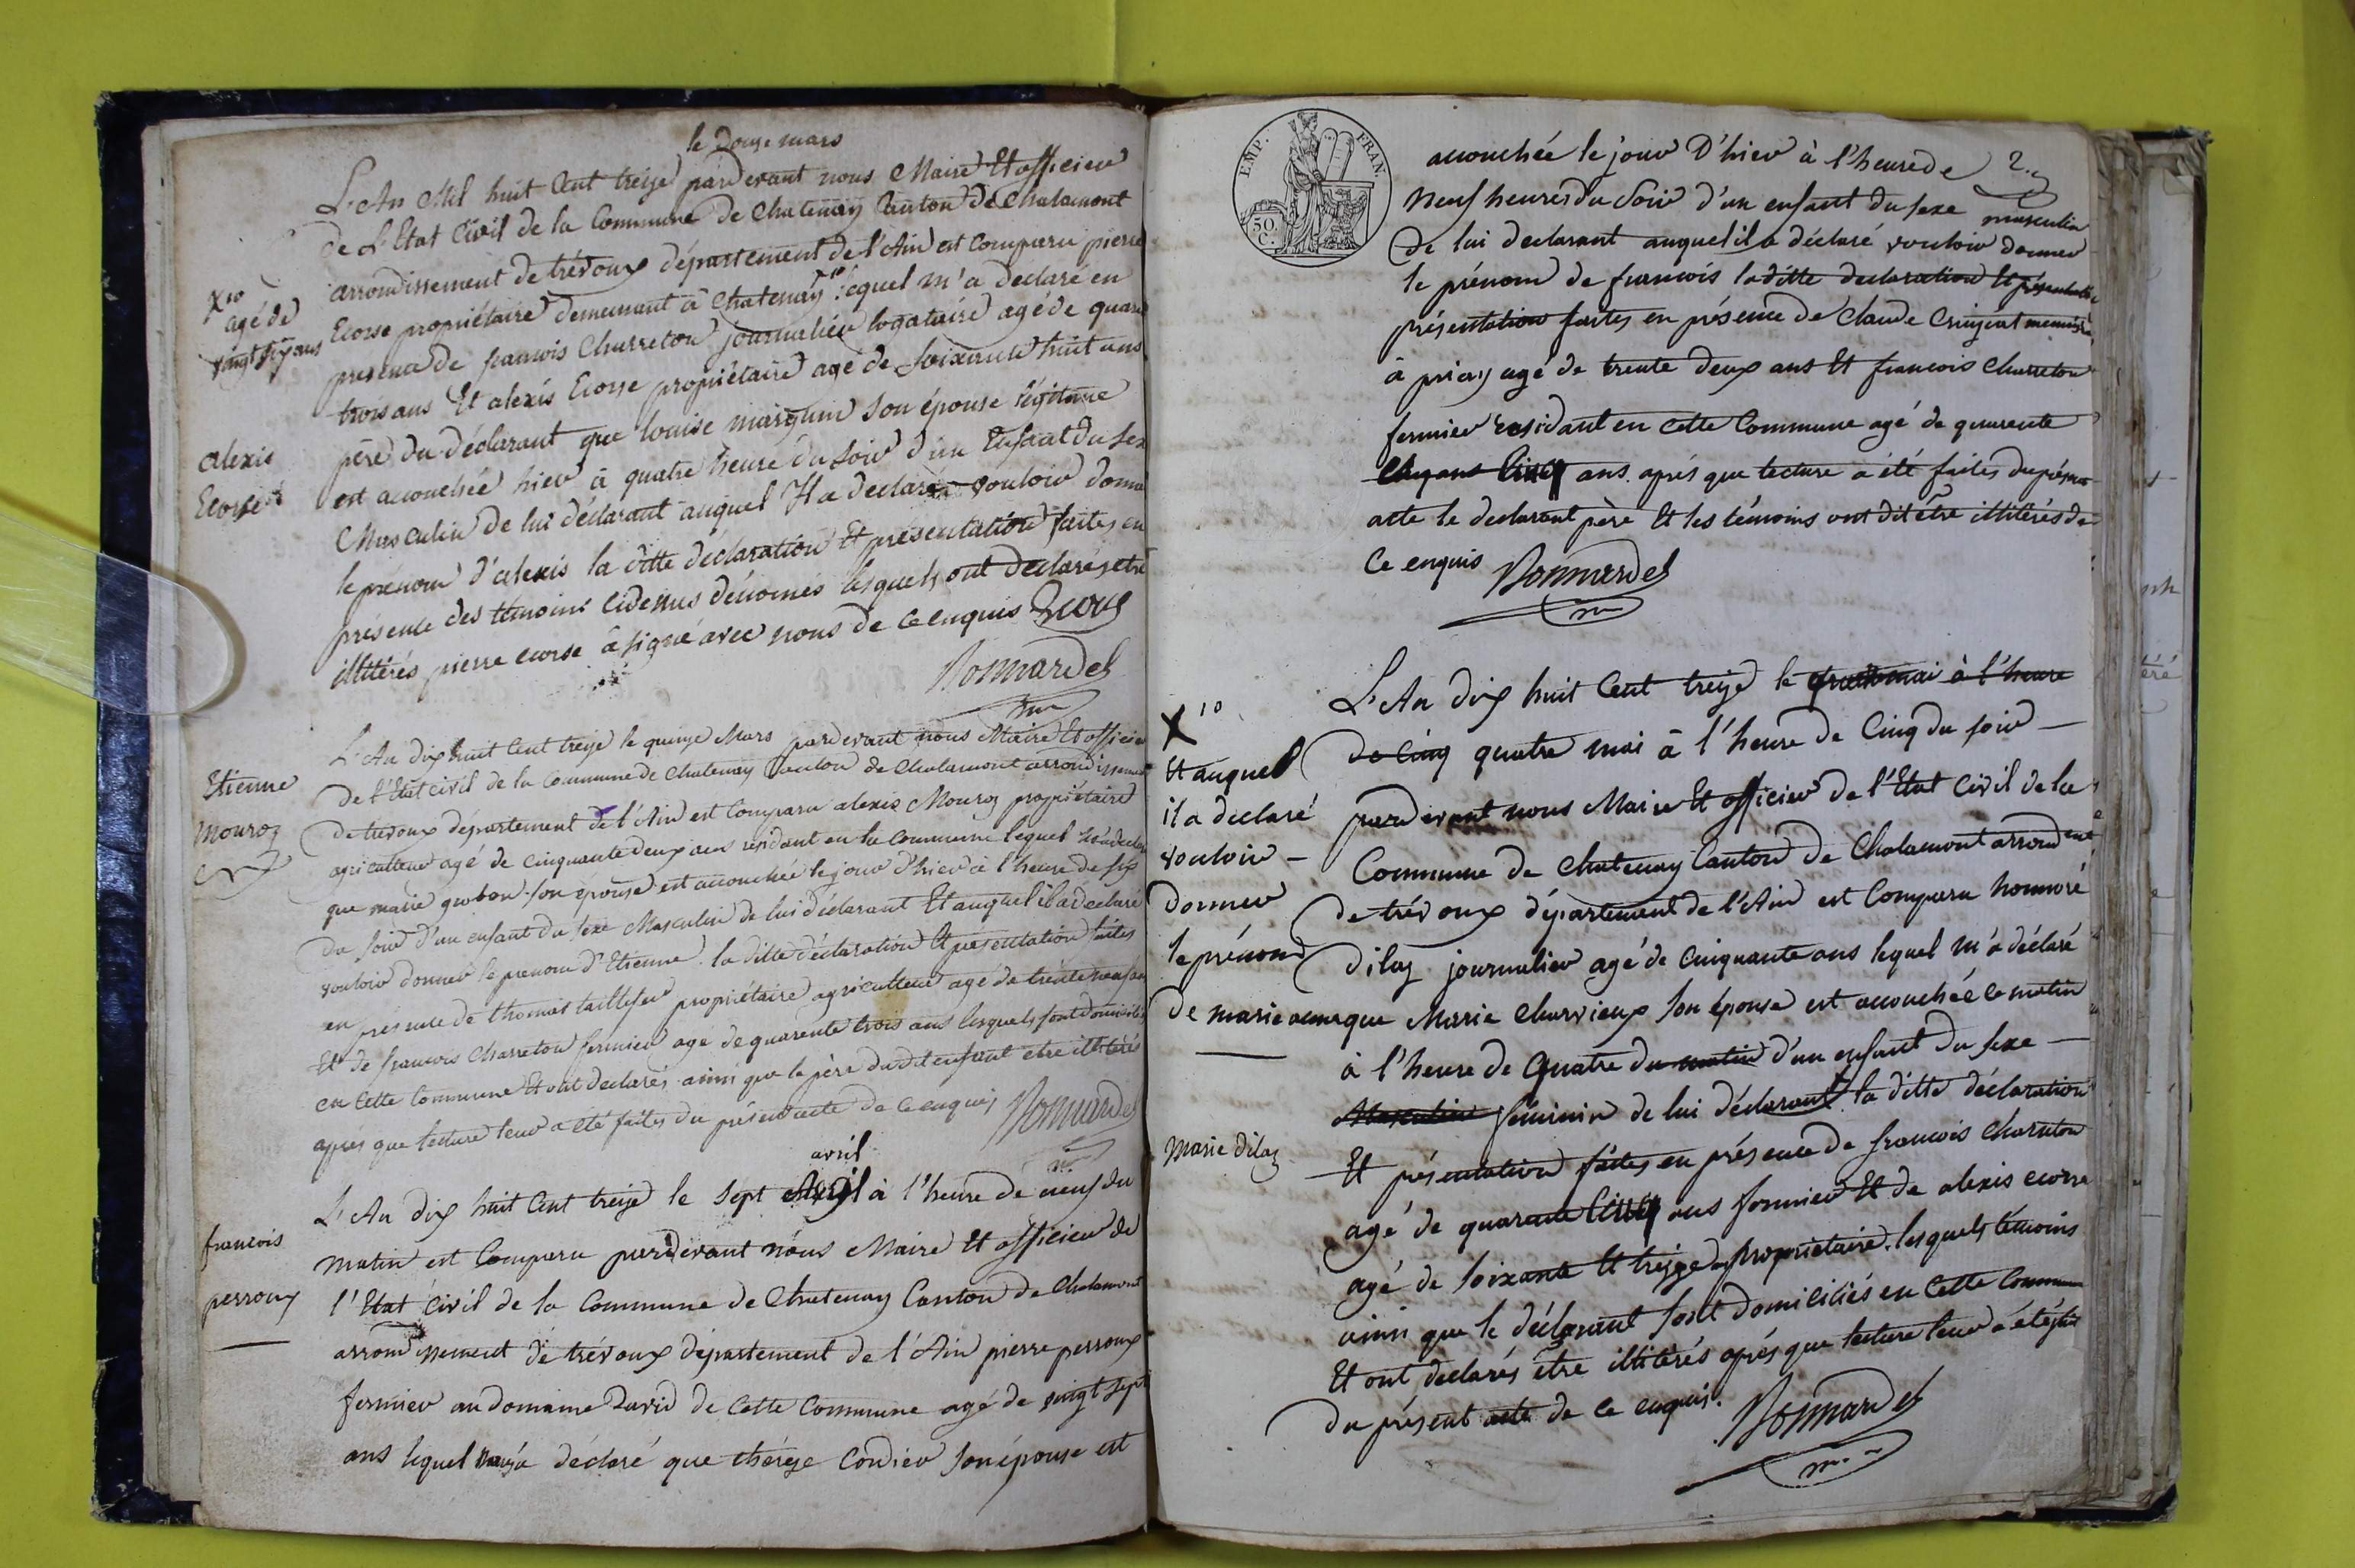 le douze mars
L'An Mil huit Cent treize pardevant nous Maire Et officier
de L'Etat Civil de la Commune de Chatenay Canton de Chalamont
arrondissement de trévoux département de l'Ain est Comparu pierre
Ecorse propriétaire demeurant à Chatenay lequel m'a declaré en
présence de francois Charreton journalier logataire agé de quara
trois ans Et alexis Ecorse propriétaire agé de soixante huit ans
père du déclarant que louise son épouse légitime
est accouchée hier à quatre heure du soir d'un Enfant du sex
Masculin de lui déclarant auquel Il a declaré vouloir donne
le prénom d'alexis la ditte déclaration Et présentation faites en
présence des témoins cidessus dénomés lesquels ont declarés etre
illitérés pierre ecorse a signé avec nous de ce enquis Ecorse
Bonnardel
X 10
agé de
vingt six ans
alexis
Ecorse
L'An dix huit Cent treize le quinze Mars pardevant nous Maire Et officier
de l'Etat civil de la Commune de Chatenay Canton de Chalamont arrondissement
de trevoux département de l'Ain est Comparu alexis Mouroz propriétaire
agriculteur agé de cinquante deux ans résidant en la Commune lequel
que marie son épouse est accouchée le jour d'hier à l'heure de six
du soir d'un enfant du sexe Masculin de lui déclarant Et auquel il a declaré
vouloir donner le prenom d'Etienne la ditte déclaration Et présentation faites
en présence de thomas taillefer propriétaire agriculteur agé de trente neuf ans
Et de francois Charreton fermier agé de quarente trois ans lesquels sont domiciliés
en cette Commune Et ont declarés ainsi que le père dudit enfant etre illitérés
après que lecture leur a été faites du présent acte de ce enquis Bonnardel
Etienne
mouroz
avril
L'An dix huit Cent treize le sept Avril à l'heure de neuf du
matin est Comparu pardevant nous Maire Et officier de
l'Etat civil de la Commune de Chatenay Canton de Chalamont
arrondissement de trévoux département de l'Ain pierre perroux
fermier au domaine David de Cette Commune agé de vingt sept
ans lequel déclaré que thérèze Cordier son épouse est
francois
perroux
EMP. FRAN.
50 C.
2.
accouchée le jour d'hier à l'heure de
neuf heures du soir d'un enfant du sexe masculin
de lui declarant auquel il a déclaré vouloir donner
le prénom de francois laditte declaration Et présentation
présentation faites en présence de Claude
à priay agé de trente deux ans Et francois Charreton
fermier residant en cette Commune agé de quarente
Cinq ans après que lecture a été faites du présent
acte le declarant père Et les témoins ont dit être illitérés de
Ce enquis Bonnardel
L'An dix huit Cent treize le à l'heure
de Cinq quatre mai à l'heure de Cinq du soir
pardevant nous Maire Et officier de l'Etat Civil de la
Commune de Chatenay Canton de Chalamont arrondent
de trévoux département de l'Ain est Comparu honnoré
dilaz journalier agé de Cinquante ans lequel m'a déclaré
que Marie Charvieux son épouse est accouchée ce matin
à l'heure de quatre du matin d'un enfant du sexe
Masculin féminin de lui déclarant la ditte déclaration
Et présentation faites en présence de francois Charreton
agé de quarente Cinq ans fermier Et de alexis ecorse
agé de soixante Et treize propriétaire lesquels témoins
ainsi que le déclarant sont domiciliés en cette Commune
Et ont declarés être illitérés après que lecture leur a été faite
du présent acte de ce enquis. Bonnardel
X 10
Et auquel
il a declaré
vouloir
donner
le prénom
de marie
Marie dilaz